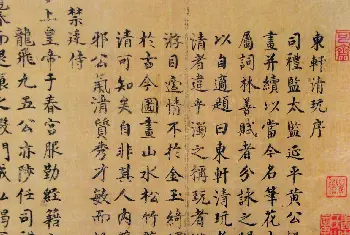 東軒清玩序
司禮監太監延平黃公
畫并續以當今名筆花
屬詞林善賦者分詠之
以自適題曰東軒清玩
清者違乎濁之稱玩者
游目適情不於金玉綺
於古今圖畫山水松竹
清可知矣自非其人內
邪公氣清質秀才敏而
禁侍
上皇帝于春宮服勤經籍
龍飛九五公亦陟任司
而退食之暇門